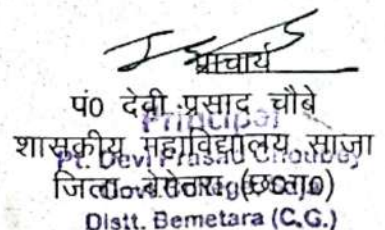 प्राचार्य
पं0 देवी प्रसाद चौबे
Principal
शासकीय महाविद्यालय, साजा
Pt. Devi Prasad Choubey
जिला बेमेतरा (छ0ग0)
Govt. College Saja
Distt. Bemetara (C.G.)